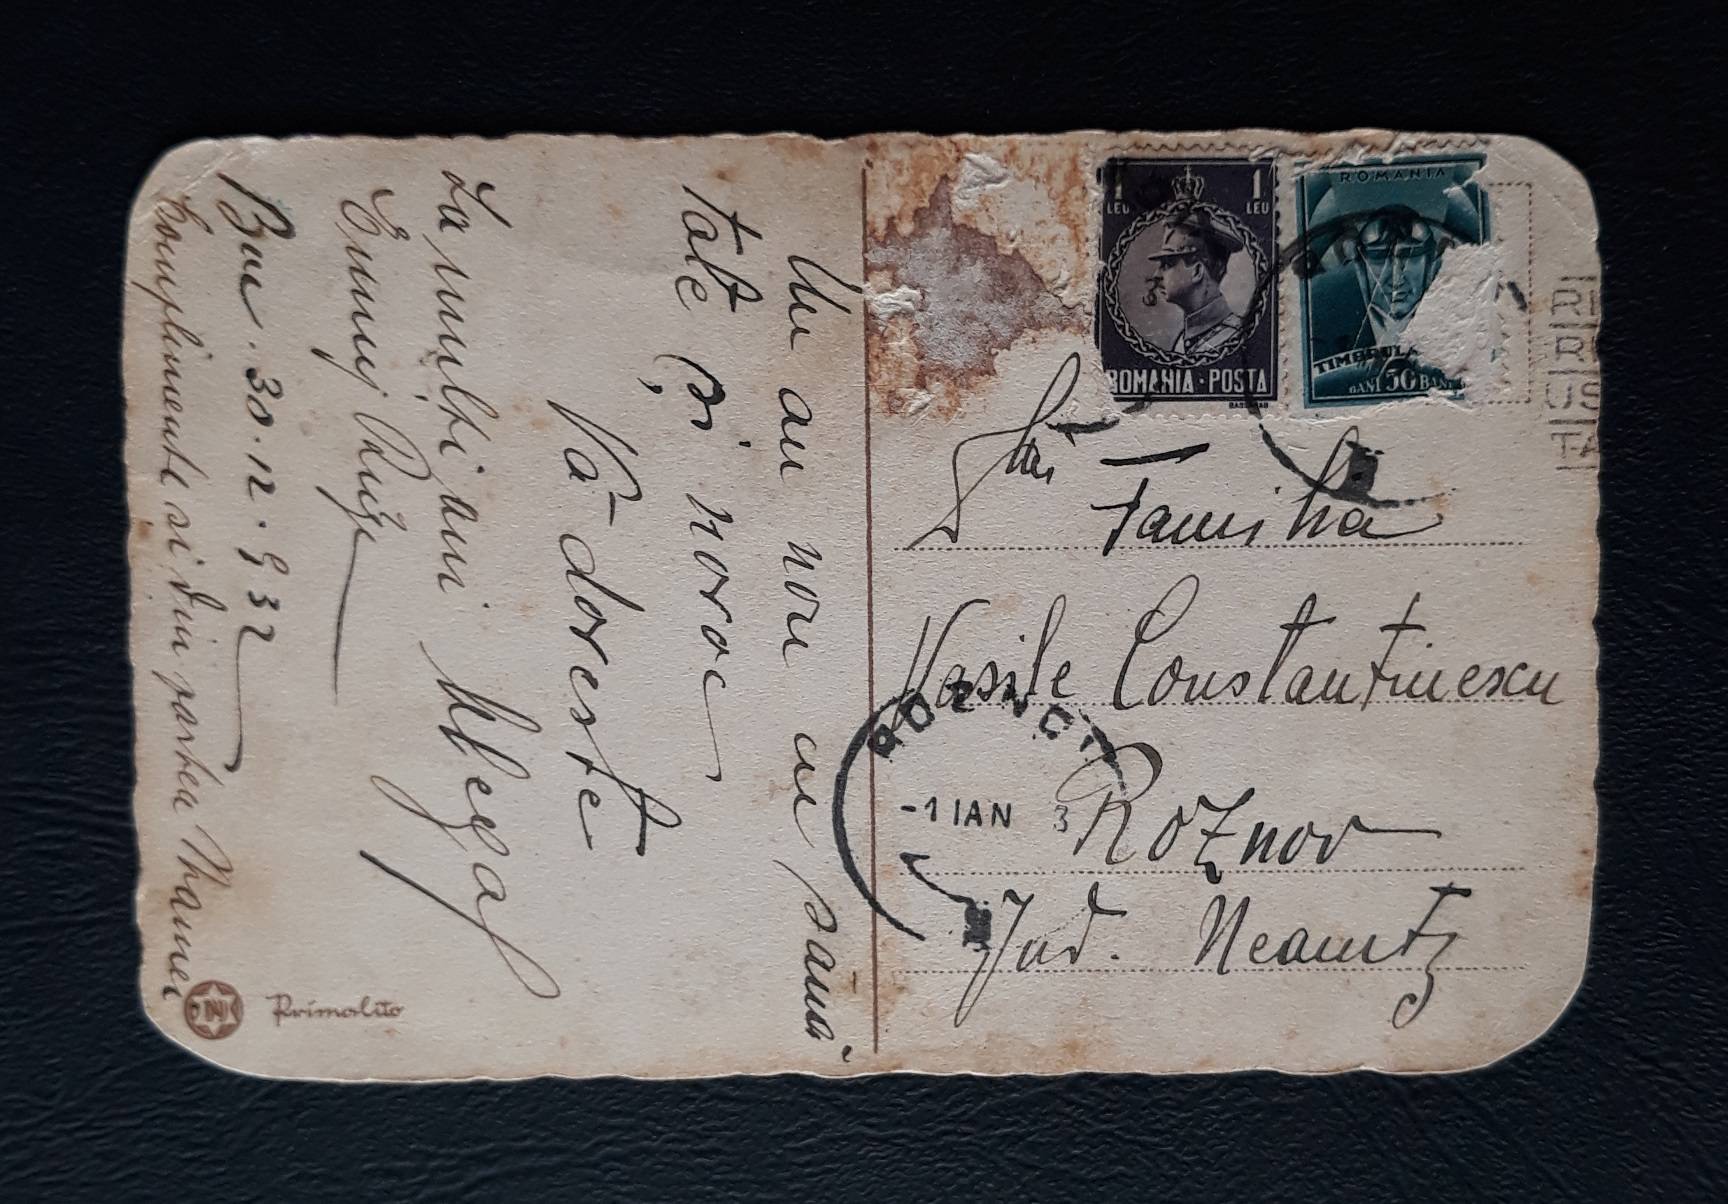 Un an nou cu sănă
tate și noroc
Vă dorește
La mulți ani
Emmy
Buc. 30.12.932
Complimente si din partea Mamei
Primolito
1 LEU 1 LEU
ROMANIA · POSTA
ROMANIA
TIMBRUL
BANI 50 BANI
Familia
Vasile Constantinescu
Roznov
Jud. Neamtz
ROZNO
-1 IAN 3